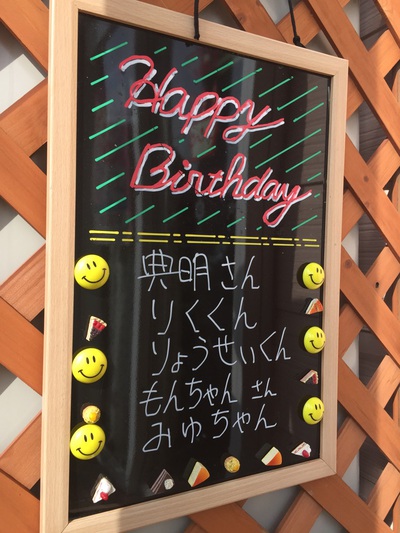 Happy
Birthday
典明さん
りくくん
りょうせいくん
もんちゃん さん
みゆちゃん